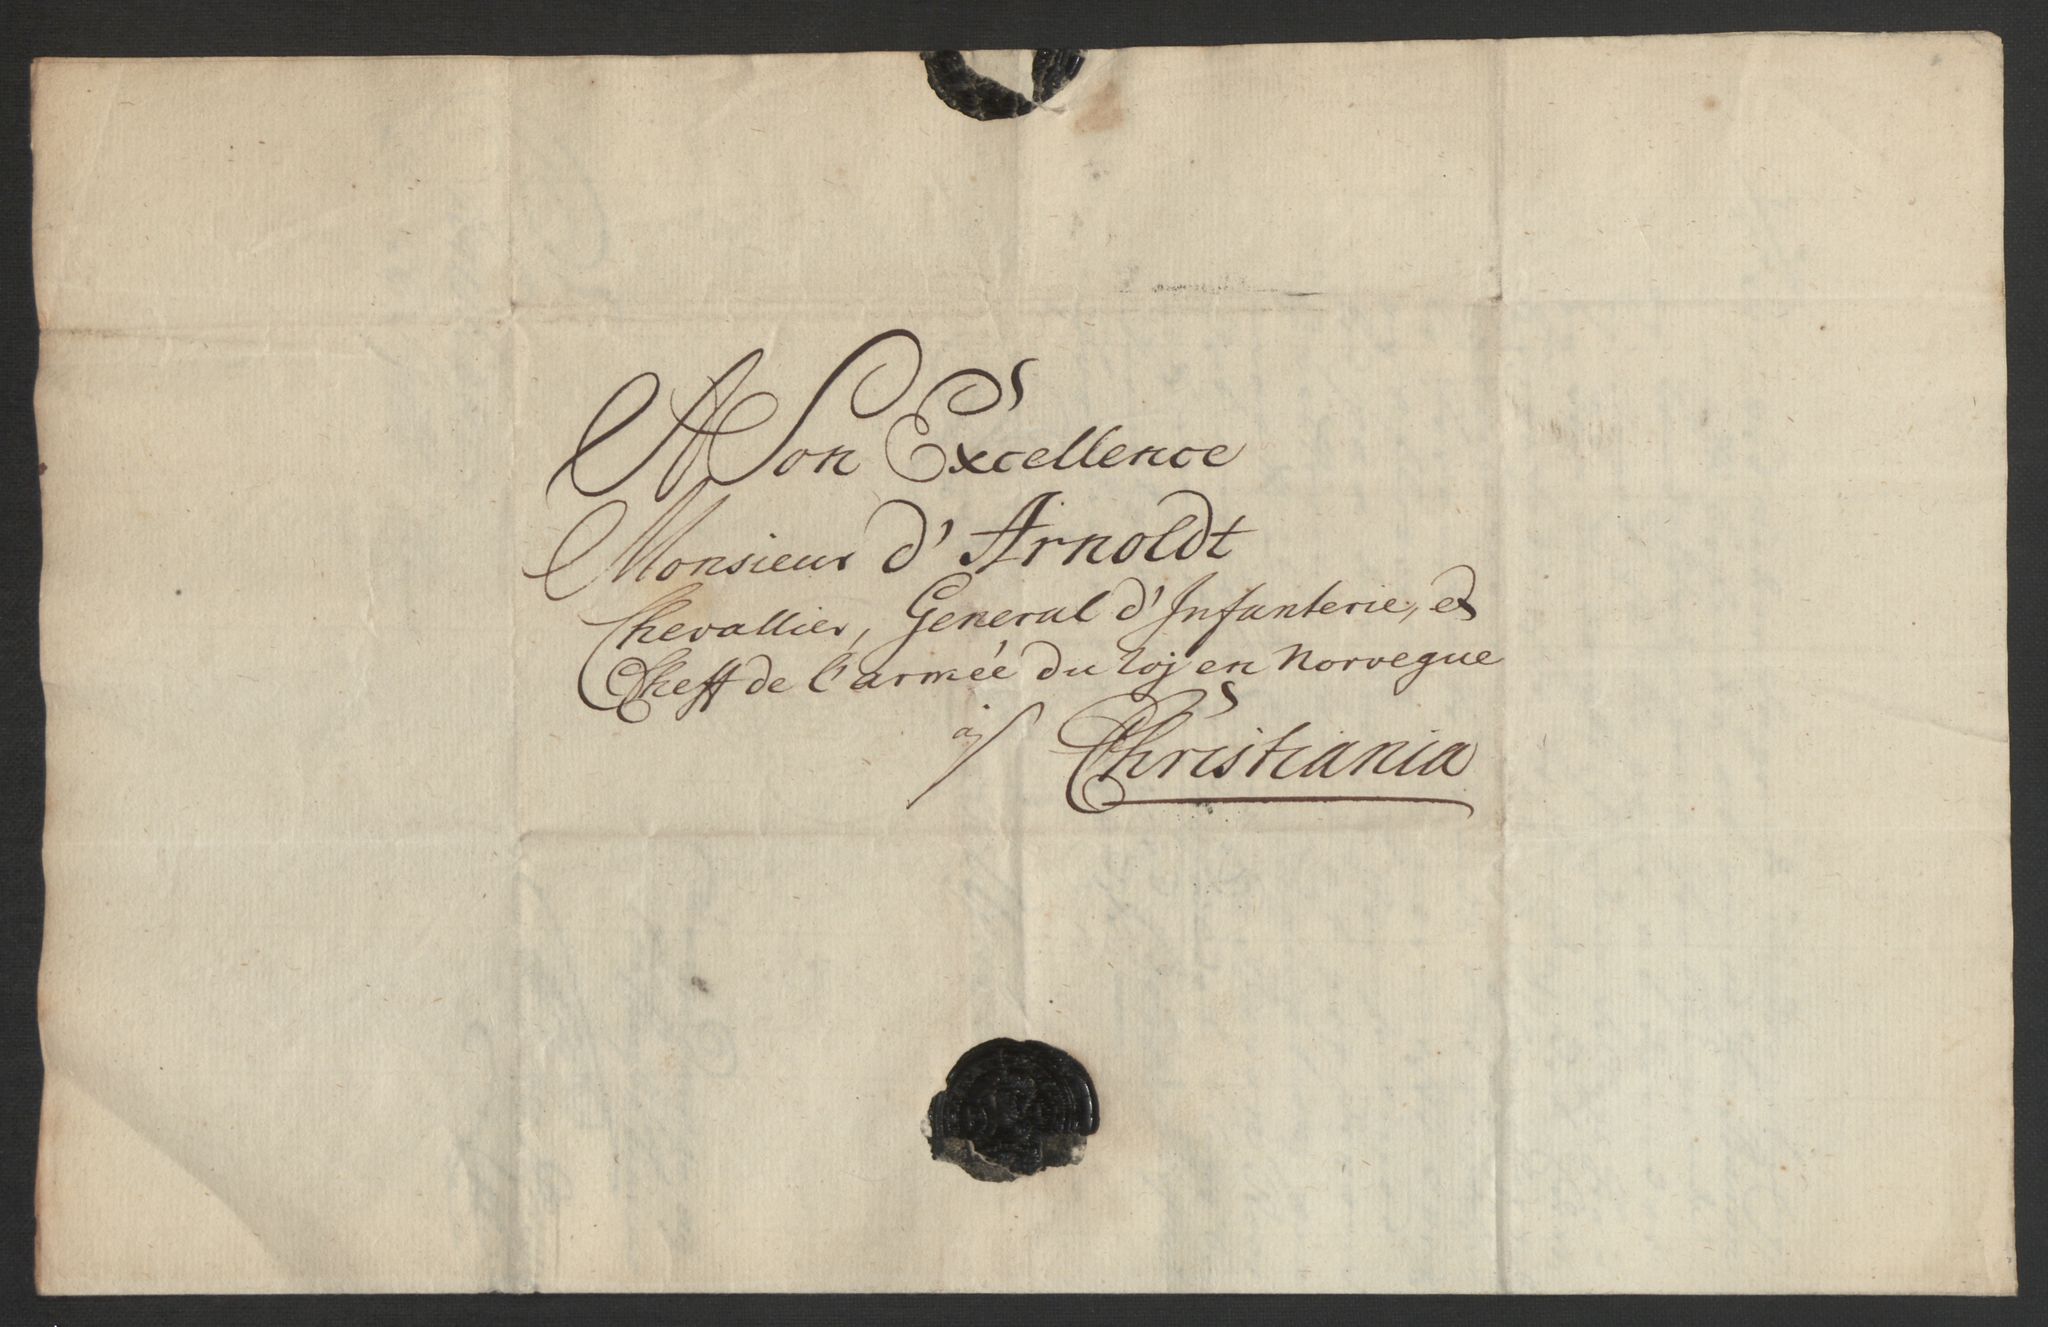 A Son Excellence
Monsieur d'Arnoldt
Chevallier, General d'Infanterie, et
Cheff de l'armée du roj en Norvegue
à
Christiania